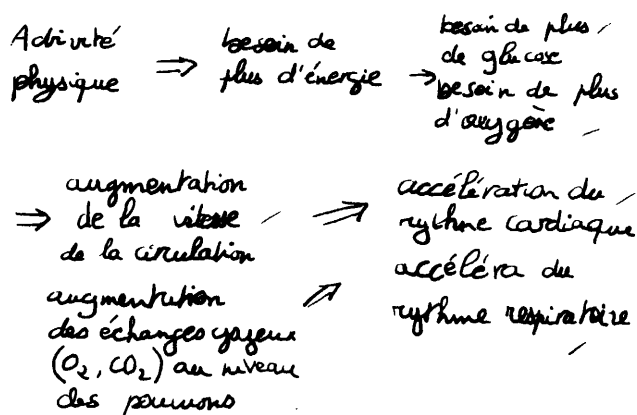 Activité
physique
⇒
besoin de
plus d'énergie
→
besoin de plus
de glucose
besoin de plus
d'oxygène
⇒
augmentation
de la vitesse
de la circulation
⇒
accélération du
rythme cardiaque
augmentation
des échanges gazeux
(O₂, CO₂) au niveau
des poumons
⇒
accéléra du
rythme respiratoire